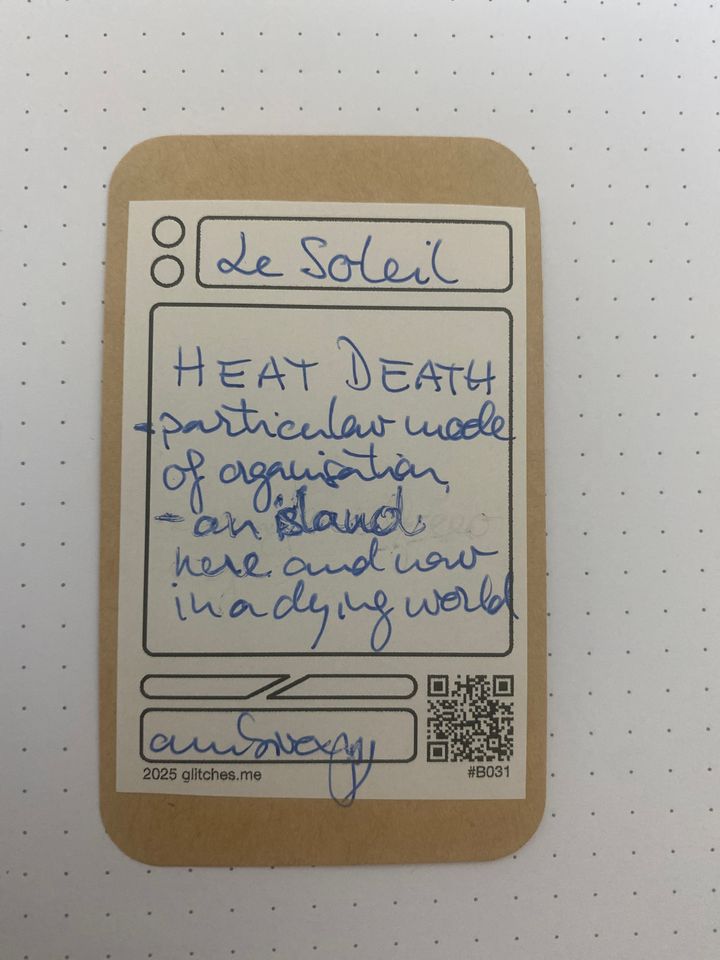 Le Soleil
HEAT DEATH
- particular mode
of organisation
- an island
here and now
in a dying world
2025 glitches.me
#B031